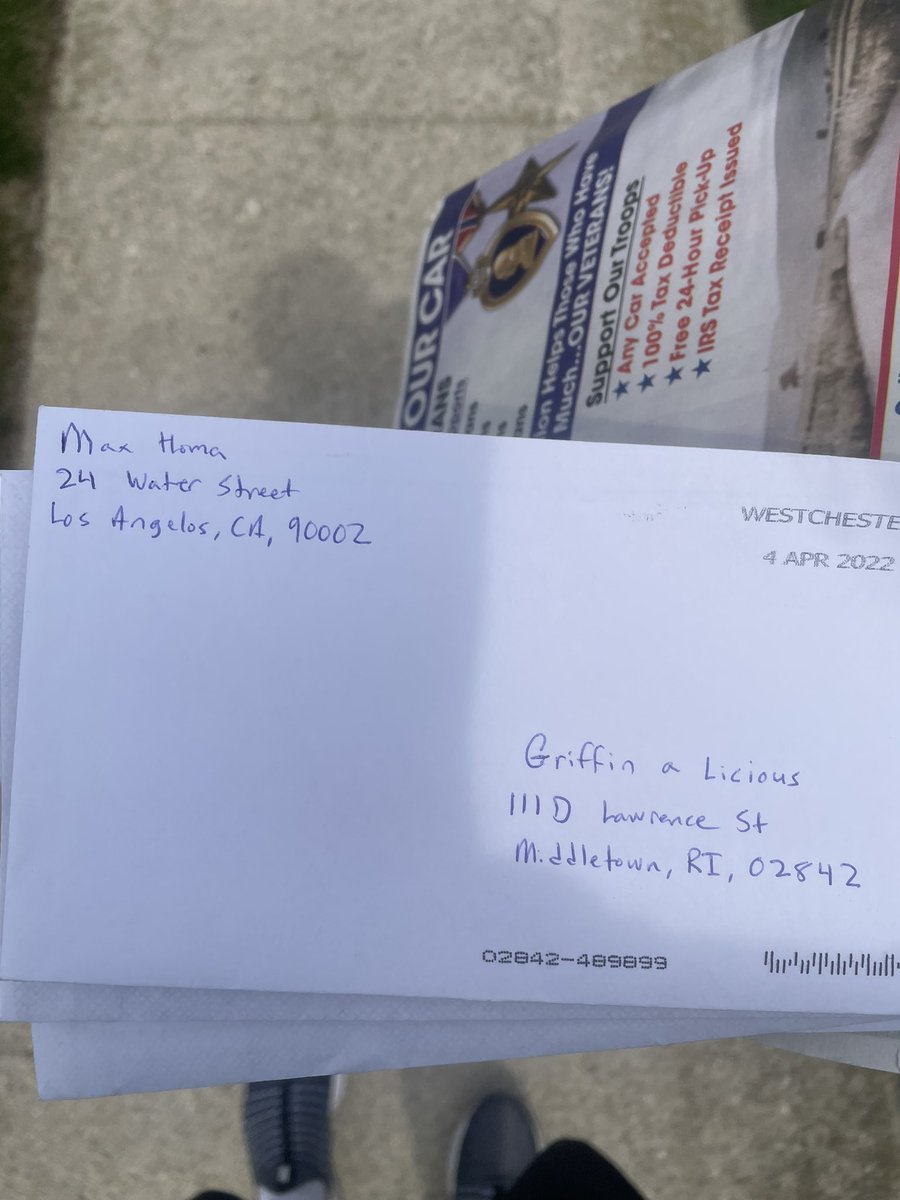 OUR CAR
ANS
ion Helps Those Who Have
Much...OUR VETERANS!
Support Our Troops
★ Any Car Accepted
★ 100% Tax Deductible
★ Free 24-Hour Pick-Up
★ IRS Tax Receipt Issued
Max Homa
24 Water Street
Los Angelos, CA, 90002
WESTCHESTE
4 APR 2022
Griffin a Licious
111 D Lawrence St
Middletown, RI, 02842
02842-489899